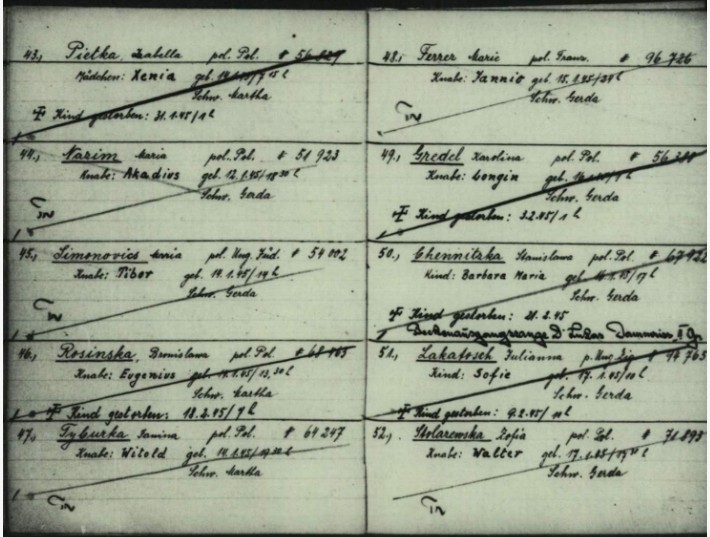 43., Pietka, Isabella pol. Pol. # 56 827
Mädchen: Xenia geb. /7 15 h
Schw. Martha
Kind gestorben: 31.1.45/1 h
44., Nazim Maria pol. Pol. # 51 923
Knabe: Akadius geb. 13.1.45/18 30 h
Schw. Gerda
45., Simonovics Maria pol. Ung. Jüd. # 54 802
Knabe: Tibor geb. 14.1.45/19 h
Schw. Gerda
46., Rosinska, Bronislawa pol. Pol.
Knabe: Evgenius geb. 14.1.45/13,30 h
Schw. Martha
Kind gestorben: 18.2.45/7 h
47., Tyburka Janina pol. Pol. # 64 247
Knabe: Witold geb. 14.1.45/
Schw. Martha
48., Ferrer Marie pol. Franz. # 96 726
Knabe: Jannic geb. 15.1.45/
Schw. Gerda
49., Gredel Karolina pol. Pol.
Knabe: Longin geb.
Schw. Gerda
Kind gestorben: 3.2.45/1 h
50., Chennitzka Stanislawa pol. Pol. # 67 922
Kind: Barbara Maria geb. /17 h
Schw. Gerda
Kind gestorben: 21.2.45
51., Lakatosch Julianna p. Ung. Zig. # 94 763
Kind: Sofie geb. 17.1.45/
Schw. Gerda
Kind gestorben: 9.2.45/
52., Stolarewska Zofia pol. Pol. # 71 893
Knabe: Walter geb. 17.1.45/
Schw. Gerda